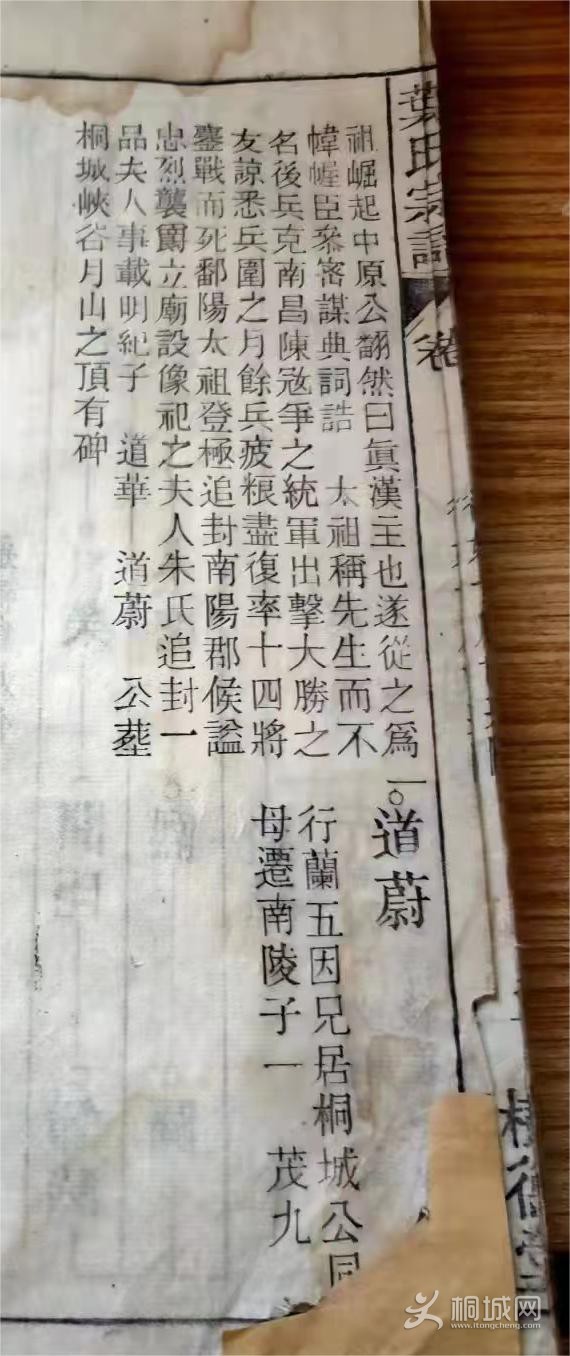 葉氏宗譜
卷
祖崛起中原公翻然曰眞漢主也遂從之爲
幃幄臣參密謀典詞誥 太祖稱先生而不
名後兵克南昌陳寇爭之統軍出擊大勝之
友諒悉兵圍之月餘兵疲粮盡復率十四將
鏖戰而死鄱陽太祖登極追封南陽郡候諡
忠烈襲廕立廟設像祀之夫人朱氏追封一
品夫人事載明紀子 道華 道蔚 公塟
桐城峽谷月山之頂有碑
一。道蔚
行蘭五因兄居桐城公同
母遷南陵子一 茂九
桐城网
www.itongcheng.com